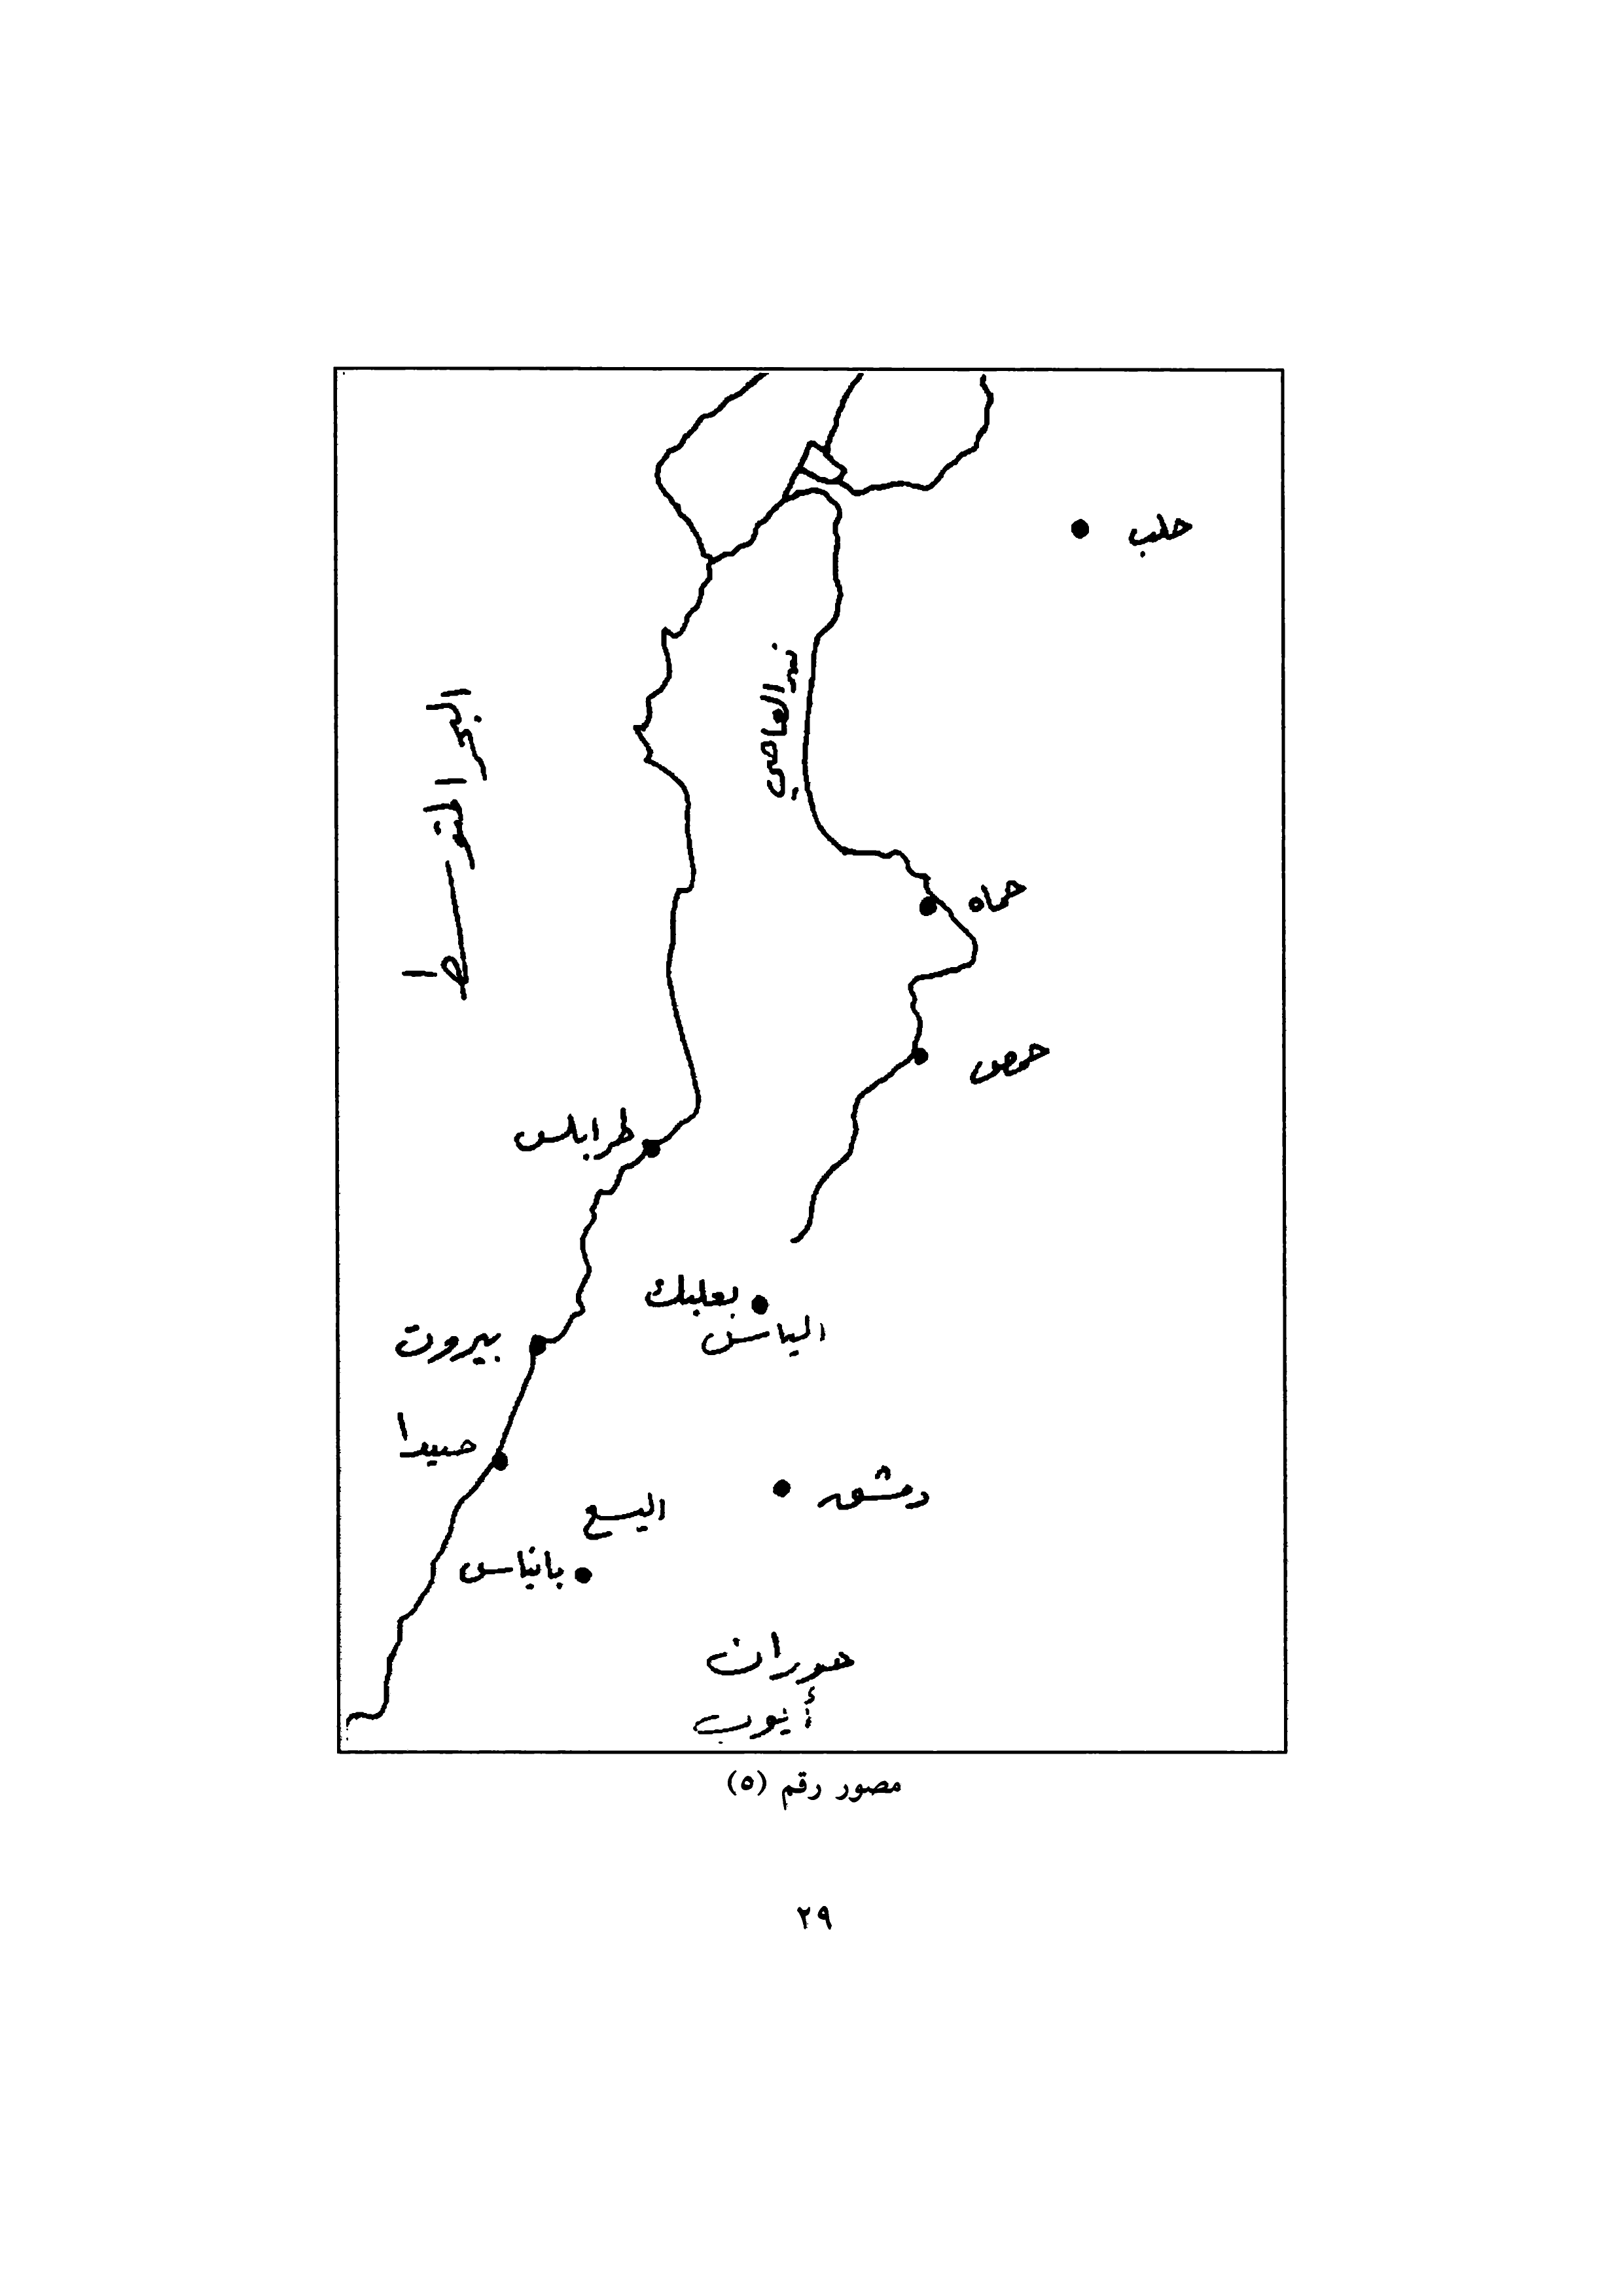 حلب
نهر العاصي
البحر المتوسط
حماه
حمص
طرابلس
بعلبك
الياس
بيروت
صيدا
دمشق
اليسع
بانياس
حوران
أيوب
مصور رقم (٥)
٢٩